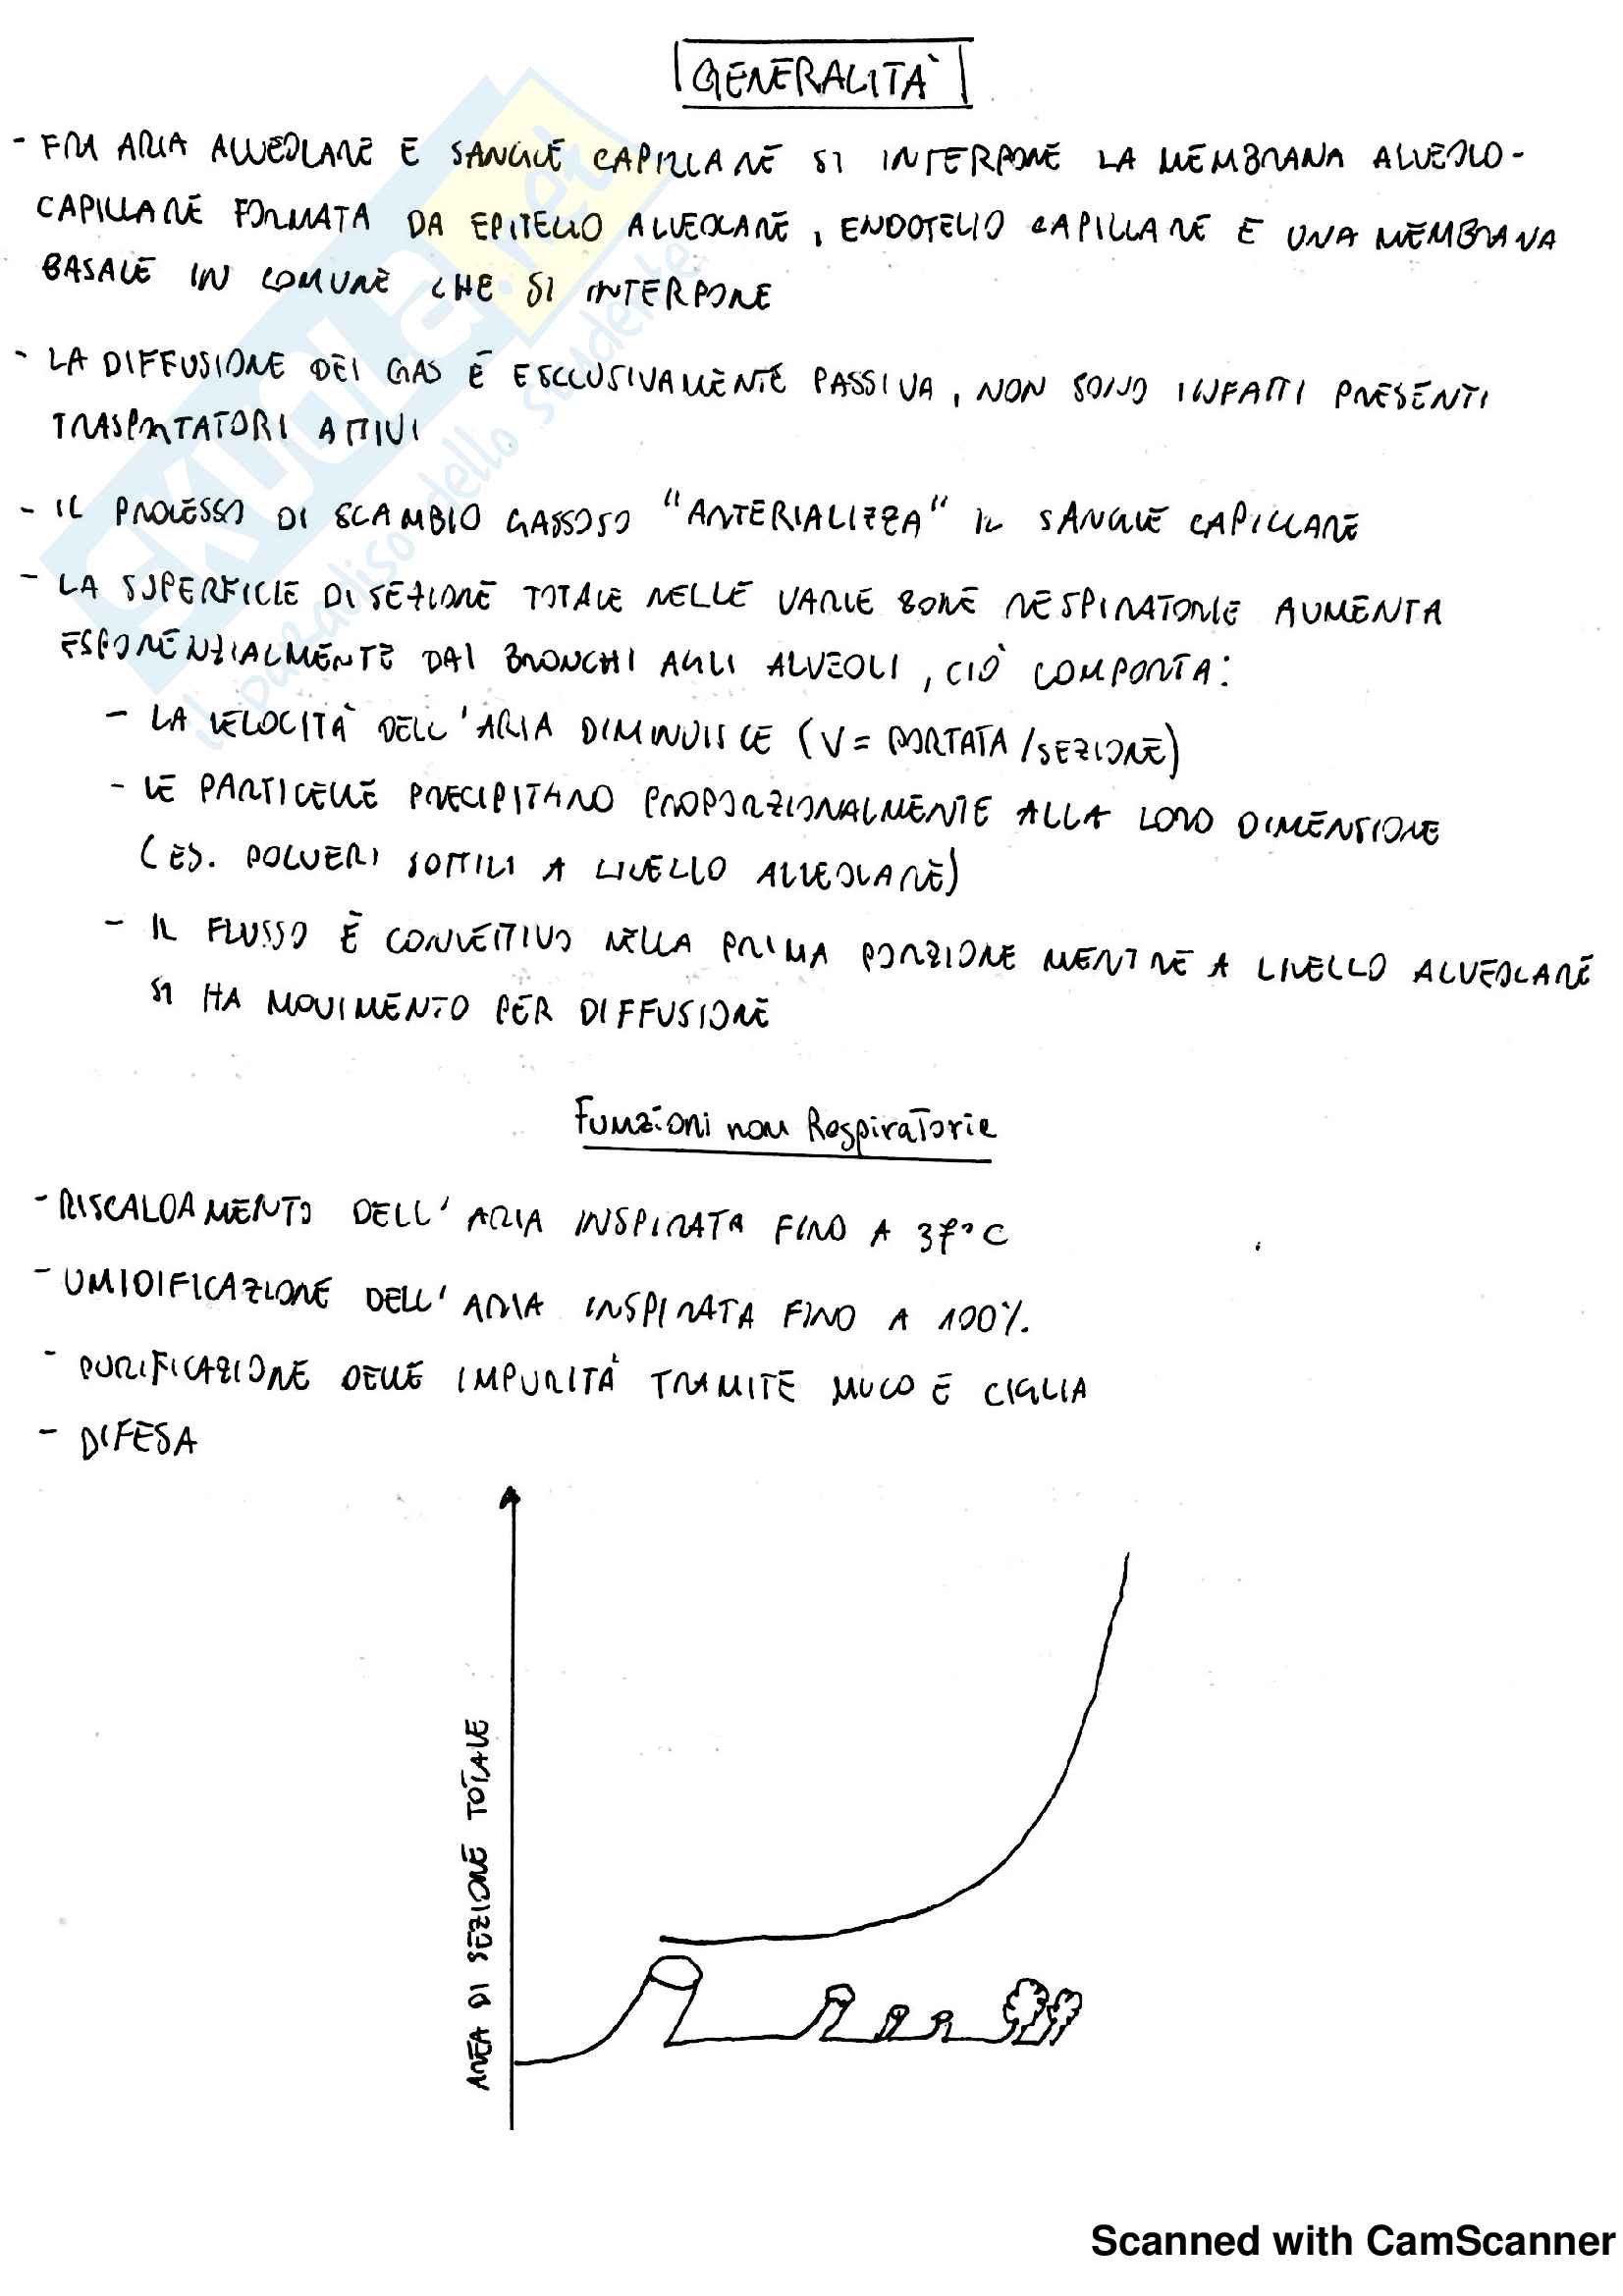 GENERALITÀ
- FRA ARIA ALVEOLARE E SANGUE CAPILLARE SI INTERPONE LA MEMBRANA ALVEOLO-
CAPILLARE FORMATA DA EPITELIO ALVEOLARE, ENDOTELIO CAPILLARE E UNA MEMBRANA
BASALE IN COMUNE CHE SI INTERPONE
- LA DIFFUSIONE DEI GAS È ESCLUSIVAMENTE PASSIVA, NON SONO INFATTI PRESENTI
TRASPORTATORI ATTIVI
- IL PROCESSO DI SCAMBIO GASSOSO "ARTERIALIZZA" IL SANGUE CAPILLARE
- LA SUPERFICIE DI SEZIONE TOTALE NELLE VARIE ZONE RESPIRATORIE AUMENTA
ESPONENZIALMENTE DAI BRONCHI AGLI ALVEOLI, CIÒ COMPORTA:
- LA VELOCITÀ DELL'ARIA DIMINUISCE (V = PORTATA/SEZIONE)
- LE PARTICELLE PRECIPITANO PROPORZIONALMENTE ALLA LORO DIMENSIONE
(ES. POLVERI SOTTILI A LIVELLO ALVEOLARE)
- IL FLUSSO È CONVETTIVO NELLA PRIMA PORZIONE MENTRE A LIVELLO ALVEOLARE
SI HA MOVIMENTO PER DIFFUSIONE
Funzioni non Respiratorie
- RISCALDAMENTO DELL'ARIA INSPIRATA FINO A 37°C
- UMIDIFICAZIONE DELL'ARIA INSPIRATA FINO A 100%
- PURIFICAZIONE DELLE IMPURITÀ TRAMITE MUCO E CIGLIA
- DIFESA
AREA DI SEZIONE TOTALE
SKUOLA.net
il paradiso dello studente
Scanned with CamScanner